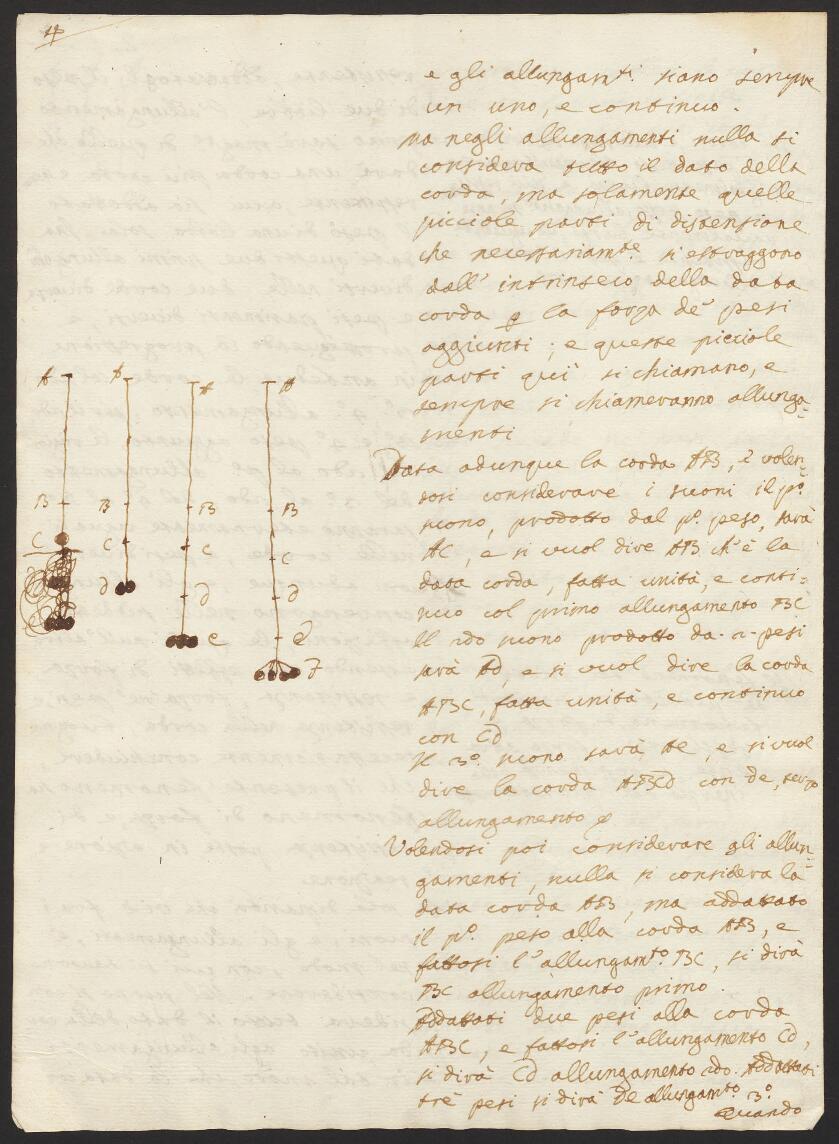 4
e gli allungamti siano sempre
un uno, e continuo.
Ma negli allungamenti nulla si
considera tutto il dato della
corda, ma solamente quelle
picciole parti di distensione
che necessariamte si estraggono
dall' intrinseco della data
corda p la forza de' pesi
aggiunti; e queste picciole
parti qui si chiamano, e
sempre si chiameranno allunga=
menti
Data adunque la corda AB, e volen=
dosi considerare i suoni il po.
suono, prodotto dal po. peso, sarà
AC, e si vuol dire AB ch'è la
data corda, fatta unità, e conti=
nuo col primo allungamento BC
Il 2do suono prodotto da 2 pesi
sarà Ad, e si vuol dire la corda
ABC, fatta unità, e continuo
con Cd
Il 3o. suono sarà Ae, e si vuol
dire la corda ABCd con de, terzo
allungamento
Volendosi poi considerare gli allun=
gamenti, nulla si considera la
data corda AB, ma addattato
il po. peso alla corda AB, e
fattosi l'allungamto BC, si dirà
BC allungamento primo.
Addattati due pesi alla corda
ABC, e fattosi l'allungamento Cd,
si dirà Cd allungamento 2do. Addattati
tre pesi si dirà de allungamto 3o.
Quando
A A A A
B B B B
C C C C
d d d
e e
F